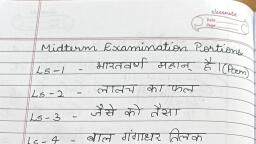 classmate
Date
Page
Midterm Examination Portions
Ls-1 - भारतवर्ष महान् है।(Poem)
Ls-2 - लालच का फल
Ls-3 - जैसे को तैसा
Ls-4 - बाल गंगाधर तिलक